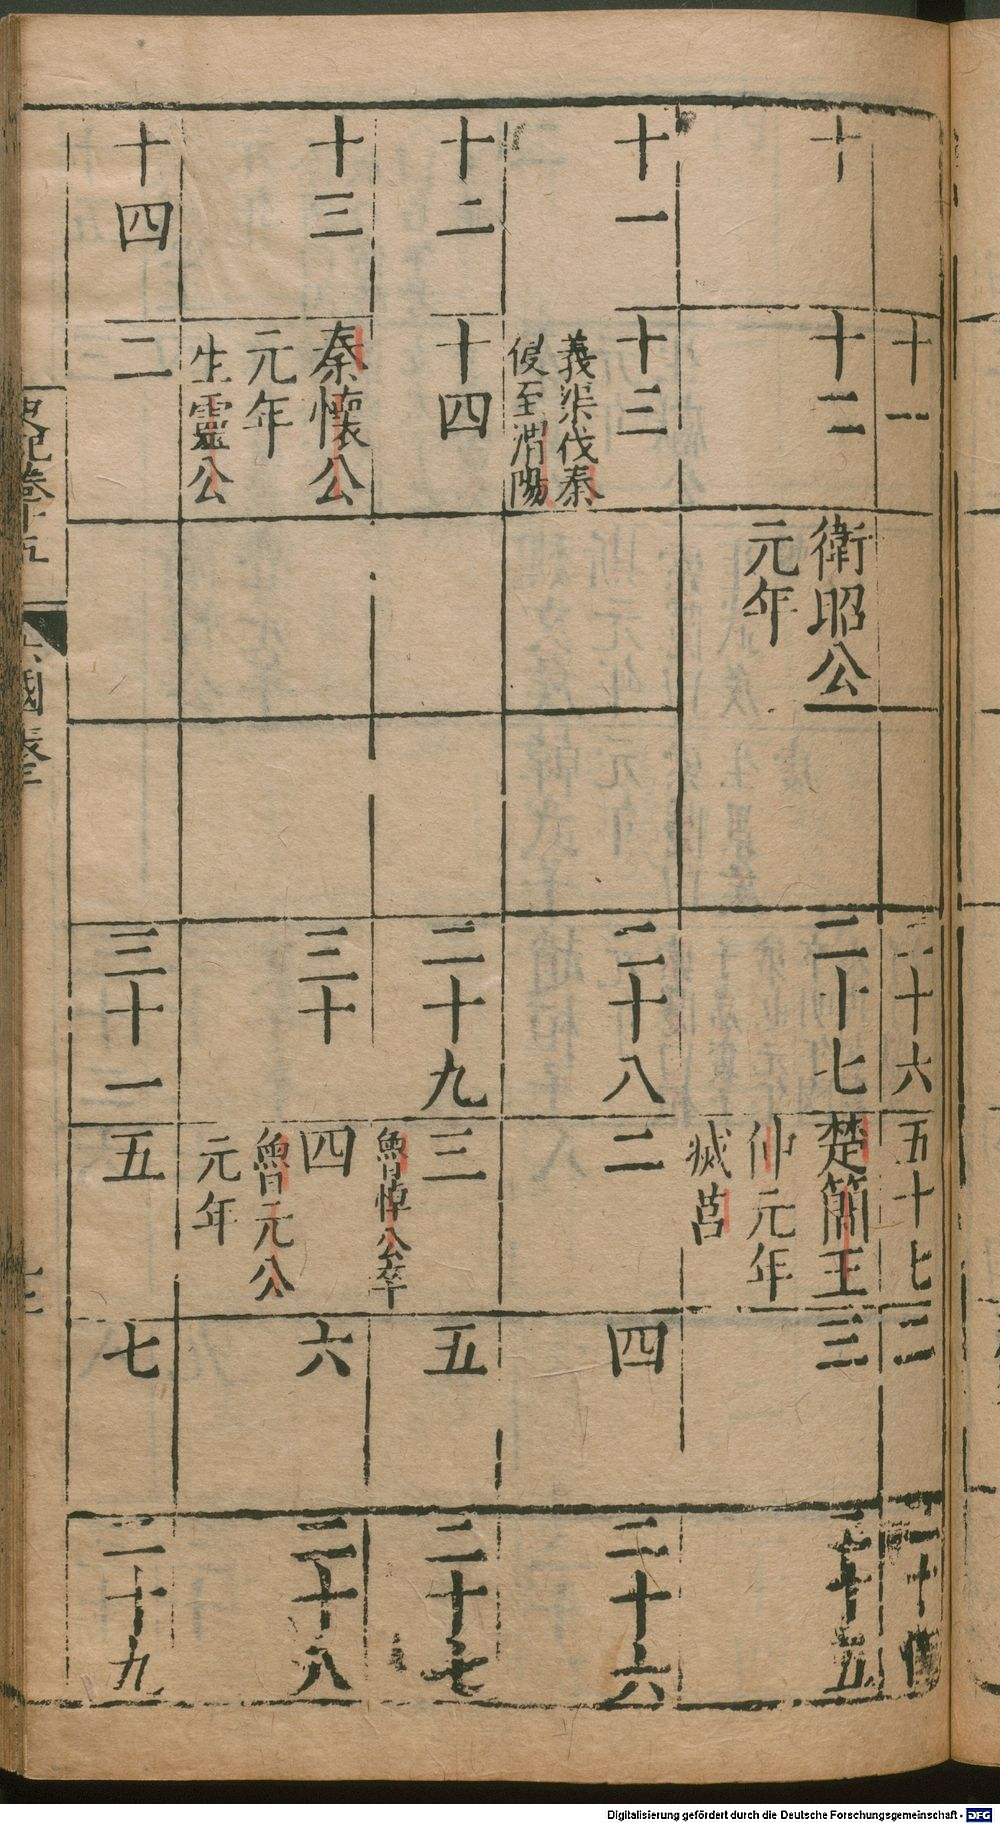 十一
二十六
五十七
二
十
十二
衛昭公
元年
二十七
楚簡王
仲元年
滅莒
三
二十五
十一
十三
義渠伐秦
侵至渭陽
二十八
二
四
二十六
十二
十四
二十九
三
魯悼公卒
五
二十七
十三
秦懷公
元年
生靈公
三十
四
魯元公
元年
六
二十八
十四
二
三十一
五
七
二十九
史記卷十五
六國表三
Digitalisierung gefördert durch die Deutsche Forschungsgemeinschaft - DFG